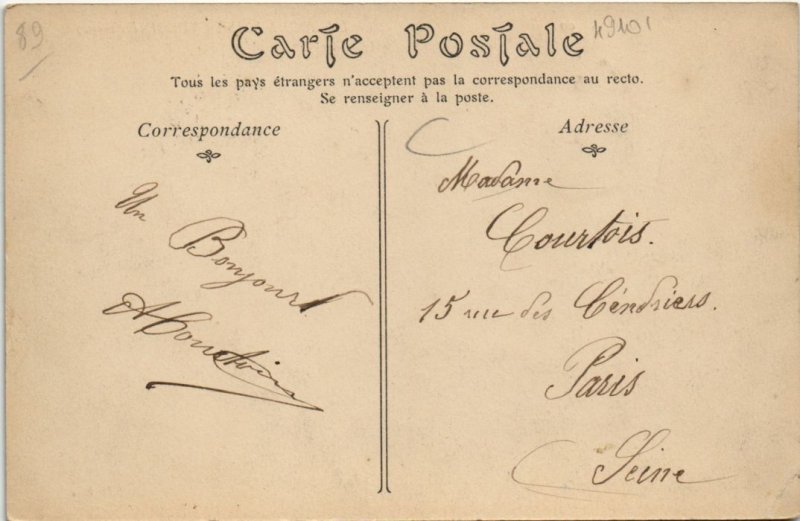 89
Carte Postale
49401
Tous les pays étrangers n'acceptent pas la correspondance au recto.
Se renseigner à la poste.
Correspondance
Un
Bonjour
ACourtois
Adresse
Madame
Courtois.
15 rue des Cendriers.
Paris
Seine